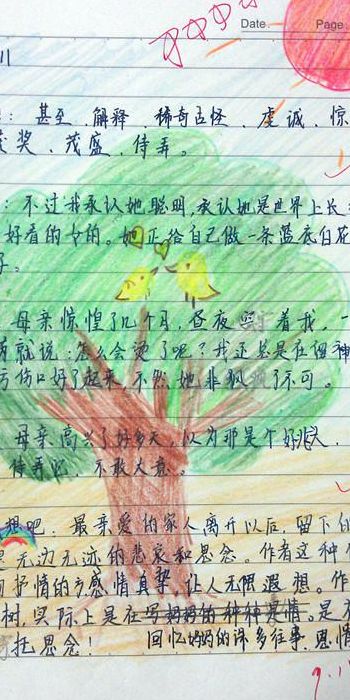 Date Page:
：甚至、解释、稀奇古怪、虔诚、惊
获奖、茂盛、侍弄。
：不过我承认她聪明，承认她是世界上长
好看的女的。她正给自己做一条蓝底白花
子。
母亲惊惶了几个月，昼夜 着我，一
就说：怎么会烫了呢？我还总是在留神
伤口好了起来，不然她非 了不可。
母亲高兴了好多天，以为那是个好兆
侍弄它，不敢大意。
想吧：最亲爱的家人离开以后，留下的
无边无迹的悲哀和思念。作者这种
抒情的方 感情真挚，让人无限遐想。作
树，实际上是在写妈妈的种种 情。是
托思念！ 回忆妈妈的许多往事、恩情